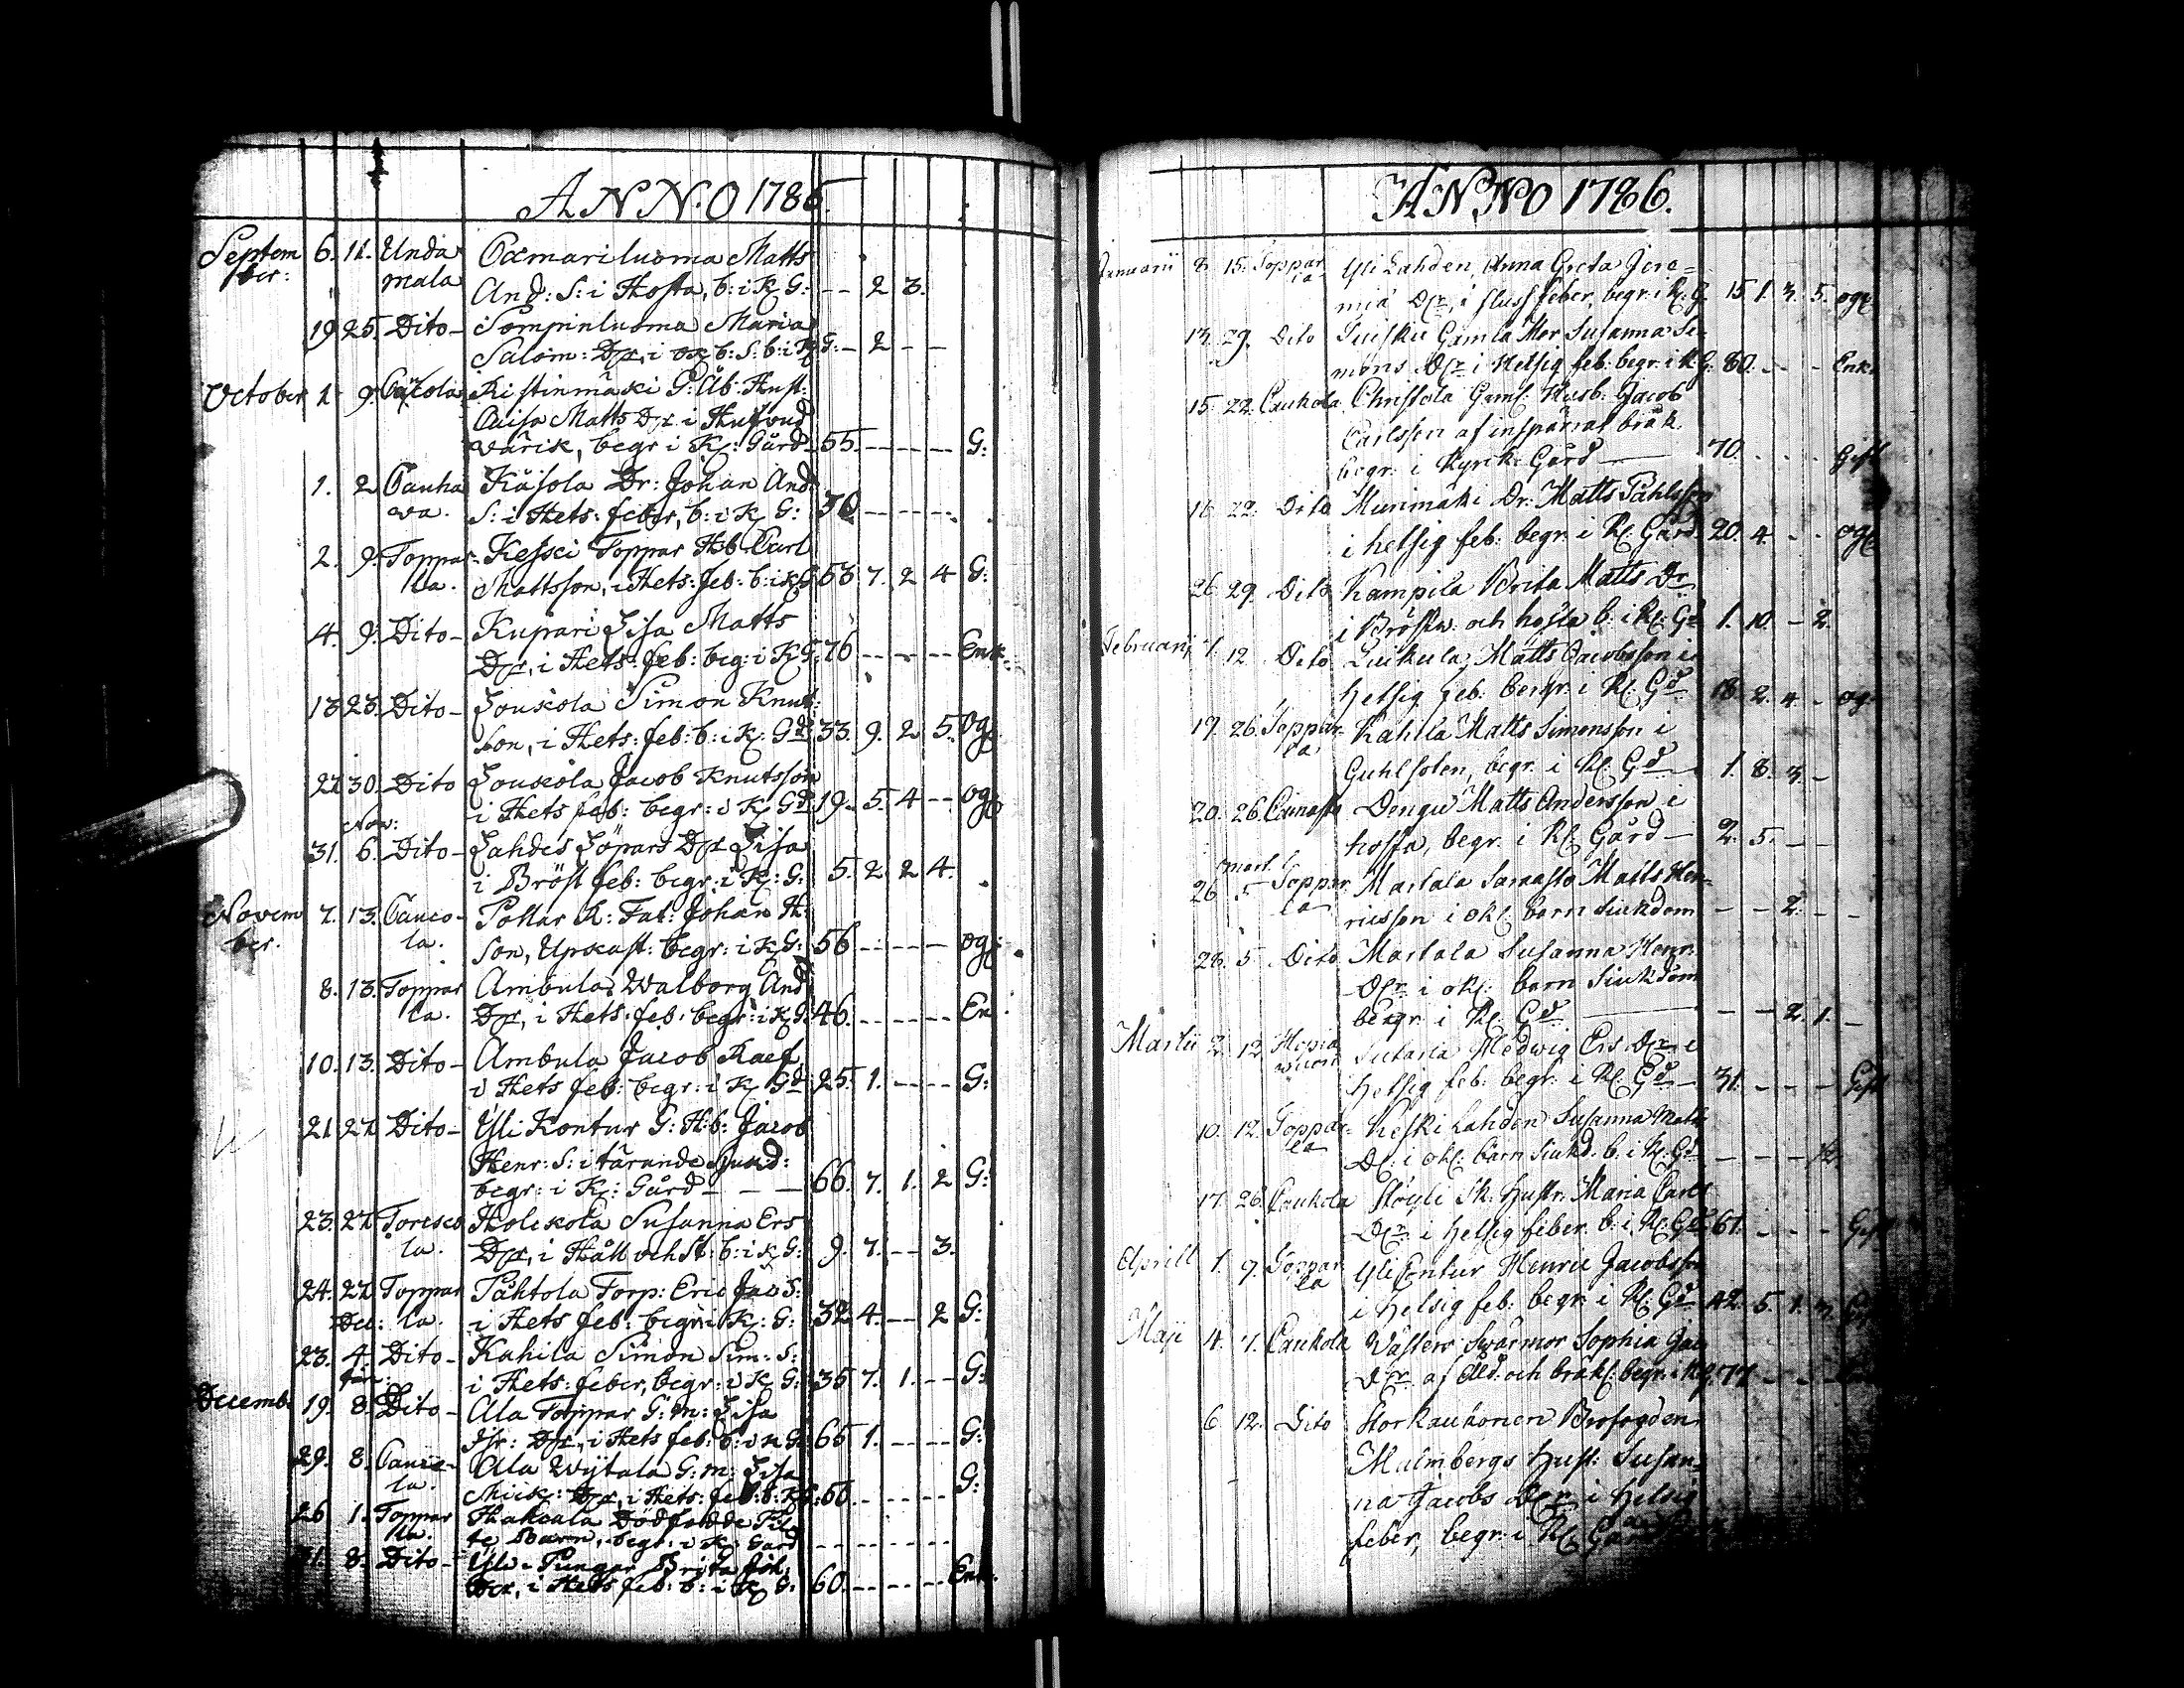 ANNO 1785.
Septem 6. 11. Unda Matts
ber: mala And: S: i Hosta, b: i K G: -- 2 3.
19 25. Dito - Sompinluoma Maria
Salom: Dr, i b: S: b: i K G: - 2 - -
October 1 9. Ristinmäki G: Åb: Hust:
Caisa Matts Dr i Hufvud
wärik, begr i K: Gård 55. - - - - G:
1. 2 Cauha Käsola Dr: Johan And
va. S: i Hets: feber, b: i K G: 30 - - - -
2. 9. Toppar Keski Toppar Hb Carl
la. Mattsson, i Hets: feb: b: i K G 53 7. 2 4 G:
4. 9. Dito - Kupari Lisa Matts
Dr, i Hets: feb: beg: i K G: 76 - - - Enk:
13 23. Dito - Loukola Simon Knut:
son, i Hets: feb: b: i K: Gd 33. 9. 2 5. Og:
22 30. Dito Loukola Jacob Knutsson
i Hets feb: begr: i K: Gd 19. 5. 4 -- og:
Nov:
31. 6. Dito - Lahdes Löpars Dr Lisa
i Bröst feb: begr: i K: G: 5. 2. 2 4.
Novem 7. 13. Cauco- Pottar R: Fat: Johan H:
ber. la. Son, Upkast: begr: i K G: 56 - - - - og:
8. 13. Toppar Ambula Walborg And
la. Dr, i Hets: feb: begr: i K G: 46. - - - - En:
10. 13. Dito - Ambula Jacob Raef
i Hets feb: begr: i K Gd 25. 1. - - - G:
21 27 Dito - Yli Kontur G: H: b: Jacob
Henr: S: i tärande Sjukd:
begr: i K: Gård - - - 66. 7. 1. 2 G:
23. 27. Holckola Susanna Ers
la. Dr, i Håll och St: b: i K G: 9. 7. -- 3.
24. 27 Toppar Påhtola Torp: Eric Jac S:
Dec: la. i Hets feb: begr i K: G: 32 4. -- 2 G:
23. 4. Dito - Kahila Simon Sim: S:
i Hets: feber, begr: i K G: 35 7. 1. -- G:
Decemb: 19. 8. Dito - Ala Toppar G: m: Lisa
Dr, i Hets feb: b: i K G: 65 1. - - - G:
29. 8. Cauco- Ala Wytala G: m: Lisa
la. Mick: Dr, i Hets: feb: b: K G: 66. - - - - G:
26 1. Toppar Hakoala Dödfödde
la. Barn, begr: i K: Gård - - - - -
31. 8. Dito - Yli Pungar Brita Joh.
Dr, i Hets feb: b: i K G: 60. - - - - Enk.
ANNO 1786.
Januarii 8. 15. Toppar Yli Lahden, Anna Greta Jere=
la mia Dr, i fluss feber, begr: i K: G. 15 1. 3. 5. ogf
13. 29. Dito Gamla Mor Susanna Si-
mons Dr i Hetsig feb: begr. i K G: 80. - - - Enk:
15. 22. Caukola Christola Gaml: Husb: Jacob
Carlsson af inspärrat bråk.
begr: i Kyrk: Gård 70. - - - Gift
16 22. Dito Murimäki Dr: Matts Påhlsson
i hetsig feb: begr. i K: Gård. 20. 4. - - ogf
26 29. Dito Kampila Brita Matts Dr
i Bröstw. och hosta b: i K: Gd 1. 10. - 2.
Februarij 7. 12. Dito Luikula Matts Jacobsson i
Hetsig feb: bergr. i K: Gd 18. 2. 4. - og
19. 26. Toppar- Kahila Matts Simonsson i
la Guhlsoten, begr. i K: Gd 1. 8. 3. -
20. 26. Matts Andersson i
hosta, begr. i K: Gård - 2. 5. - -
Mart.
26. 5. Toppar Martala Matts Hen-
la ricsson i okl: barn siukdom - - 2. - -
28. 5. Dito Martala Susanna Henr.
Dr i okl: barn Siukdom
bergr: i K: Gd - - 2. 1. -
Martii 2. 12. Hedwig Ers Dr i
Hetsig feb: begr: i K: Gd - 31. - - - Gift
10. 12. Toppar- Keski Lahden Susanna Matts
la Dr: i okl: barn Siukd. b. i K: Gd - - -
17. 26. Caukola Hustr. Maria Carls
Dr i hetsig feber. b: i K: Gd 67. - - - Gift
Aprill 1. 9. Toppar Yli Contur Henric Jacobsson
la i Hetsig feb: begr: i K: Gd 42. 5. 1.
Maji 4. 7. Caukola Swärmor Sophia Jac
Dr af Åld: och bråk: begr: i K G. 77 - - -
6. 12. Dito Stor Kaukonen Brofogden
Malmbergs Hust: Susan-
na Jacobs Dr i Hetsig
feber, begr: i K: Gård